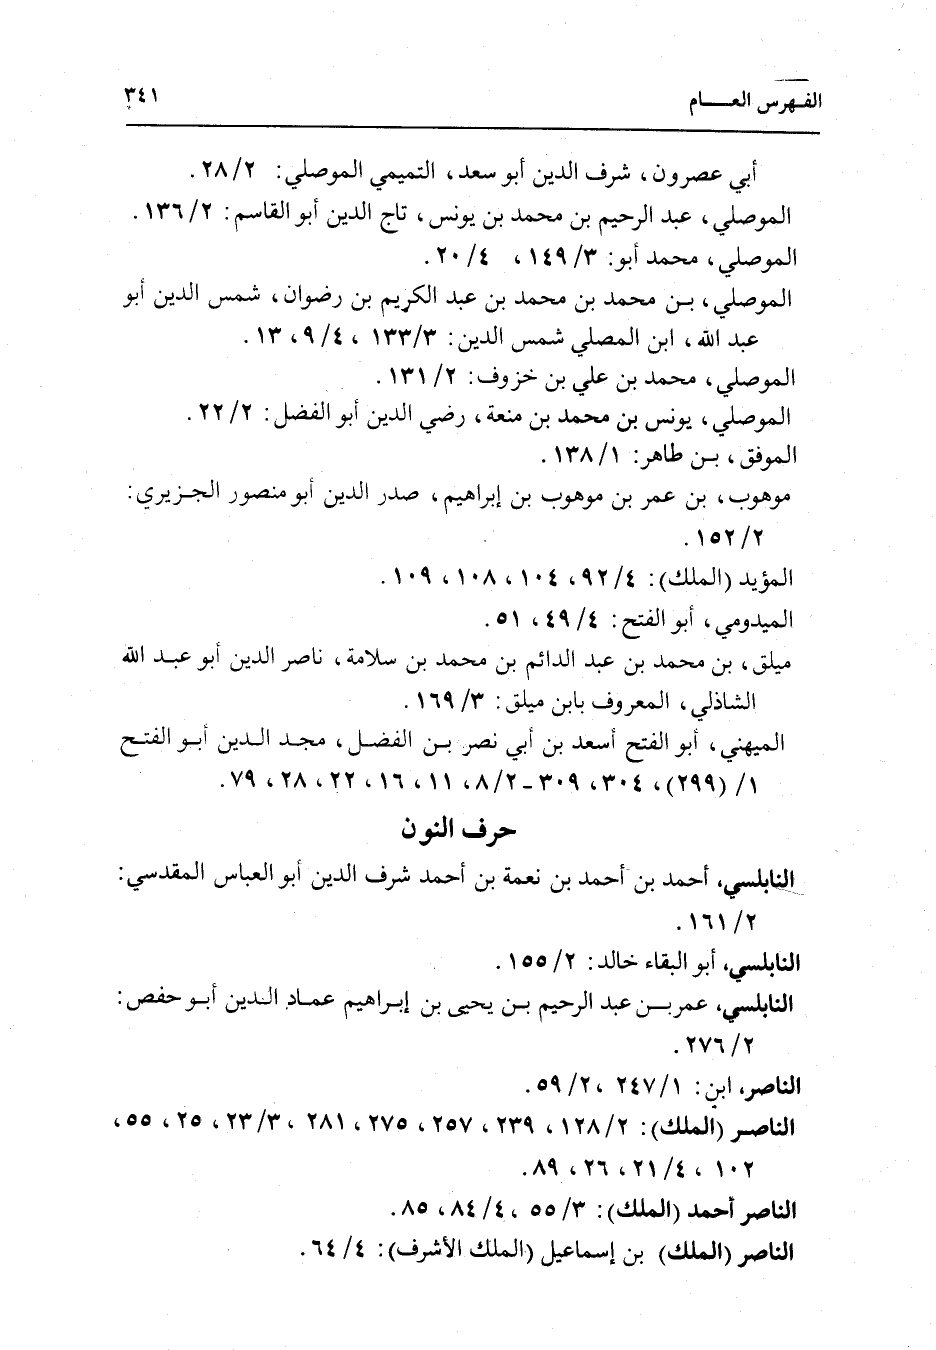 الفهرس العام ٣٤١
أبي عصرون، شرف الدين أبو سعد، التميمي الموصلي: ٢٨/٢.
الموصلي، عبد الرحيم بن محمد بن يونس، تاج الدين أبو القاسم: ١٣٦/٢.
الموصلي، محمد أبو: ١٤٩/٣، ٢٠/٤.
الموصلي، بن محمد بن محمد بن عبد الكريم بن رضوان، شمس الدين أبو
عبد الله، ابن المصلي شمس الدين: ١٣٣/٣، ٩/٤، ١٣.
الموصلي، محمد بن علي بن خزوف: ١٣١/٢.
الموصلي، يونس بن محمد بن منعة، رضي الدين أبو الفضل: ٢٢/٢.
الموفق، بن طاهر: ١٣٨/١.
موهوب، بن عمر بن موهوب بن إبراهيم، صدر الدين أبو منصور الجزيري:
١٥٢/٢.
المؤيد (الملك): ٩٢/٤، ١٠٤، ١٠٨، ١٠٩.
الميدومي، أبو الفتح: ٤٩/٤، ٥١.
ميلق، بن محمد بن عبد الدائم بن محمد بن سلامة، ناصر الدين أبو عبد الله
الشاذلي، المعروف بابن ميلق: ١٦٩/٣.
الميهني، أبو الفتح أسعد بن أبي نصر بن الفضل، مجد الدين أبو الفتح
١/ (٢٩٩)، ٣٠٤، ٣٠٩ـ ٨/٢، ١١، ١٦، ٢٢، ٢٨، ٧٩.
حرف النون
النابلسي، أحمد بن أحمد بن نعمة بن أحمد شرف الدين أبو العباس المقدسي:
١٦١/٢.
النابلسي، أبو البقاء خالد: ١٥٥/٢.
النابلسي، عمر بن عبد الرحيم بن يحيى بن إبراهيم عماد الدين أبو حفص:
٢٧٦/٢.
الناصر، ابن: ٢٤٧/١، ٥٩/٢.
الناصر (الملك): ١٢٨/٢، ٢٣٩، ٢٥٧، ٢٧٥، ٢٨١، ٢٣/٣، ٢٥، ٥٥،
١٠٢، ٢١/٤، ٢٦، ٨٩.
الناصر أحمد (الملك): ٥٥/٣، ٨٤/٤، ٨٥.
الناصر (الملك) بن إسماعيل (الملك الأشرف): ٦٤/٤.